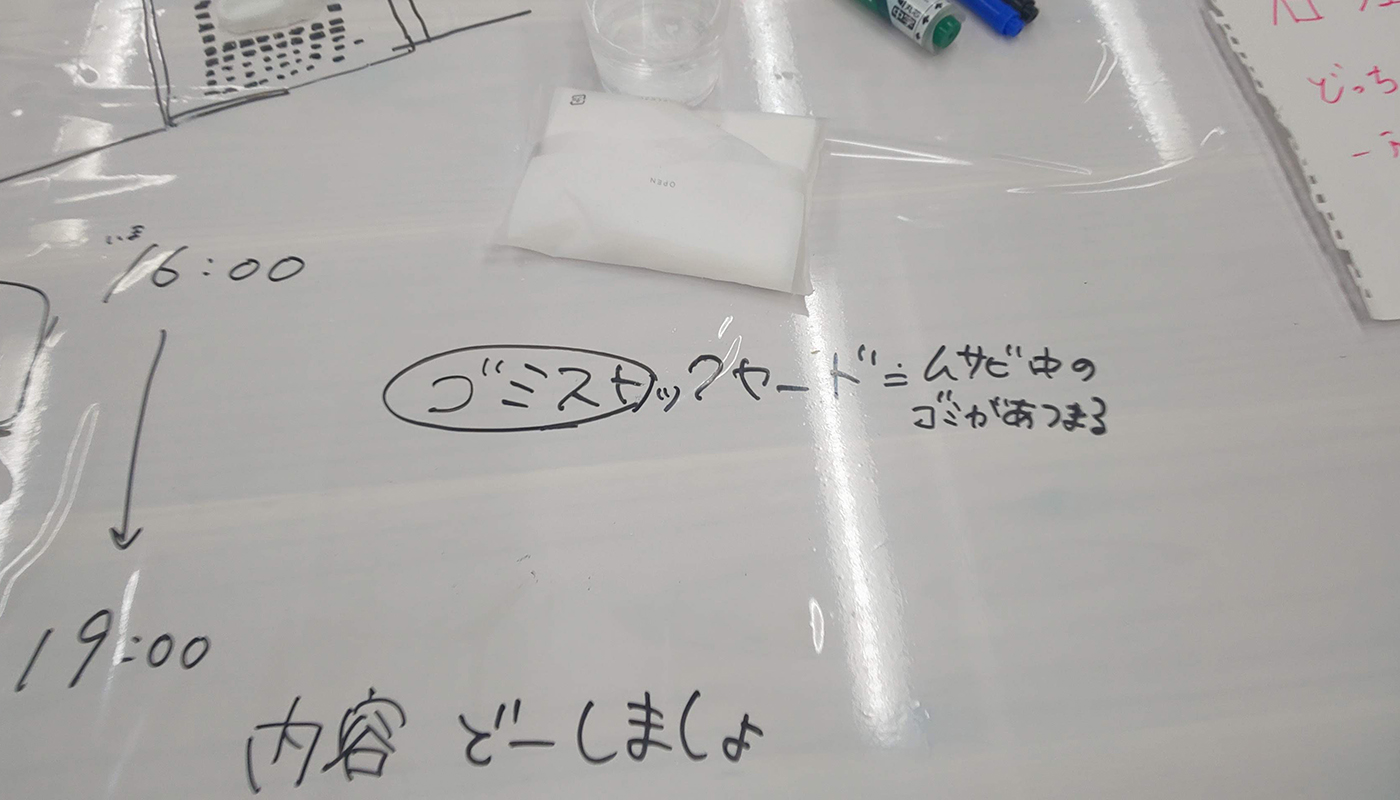 どっち
OPEN
いま
16:00
ゴミストックヤード=ムサビ中の
ゴミがあつまる
19:00
内容 どーしましょ